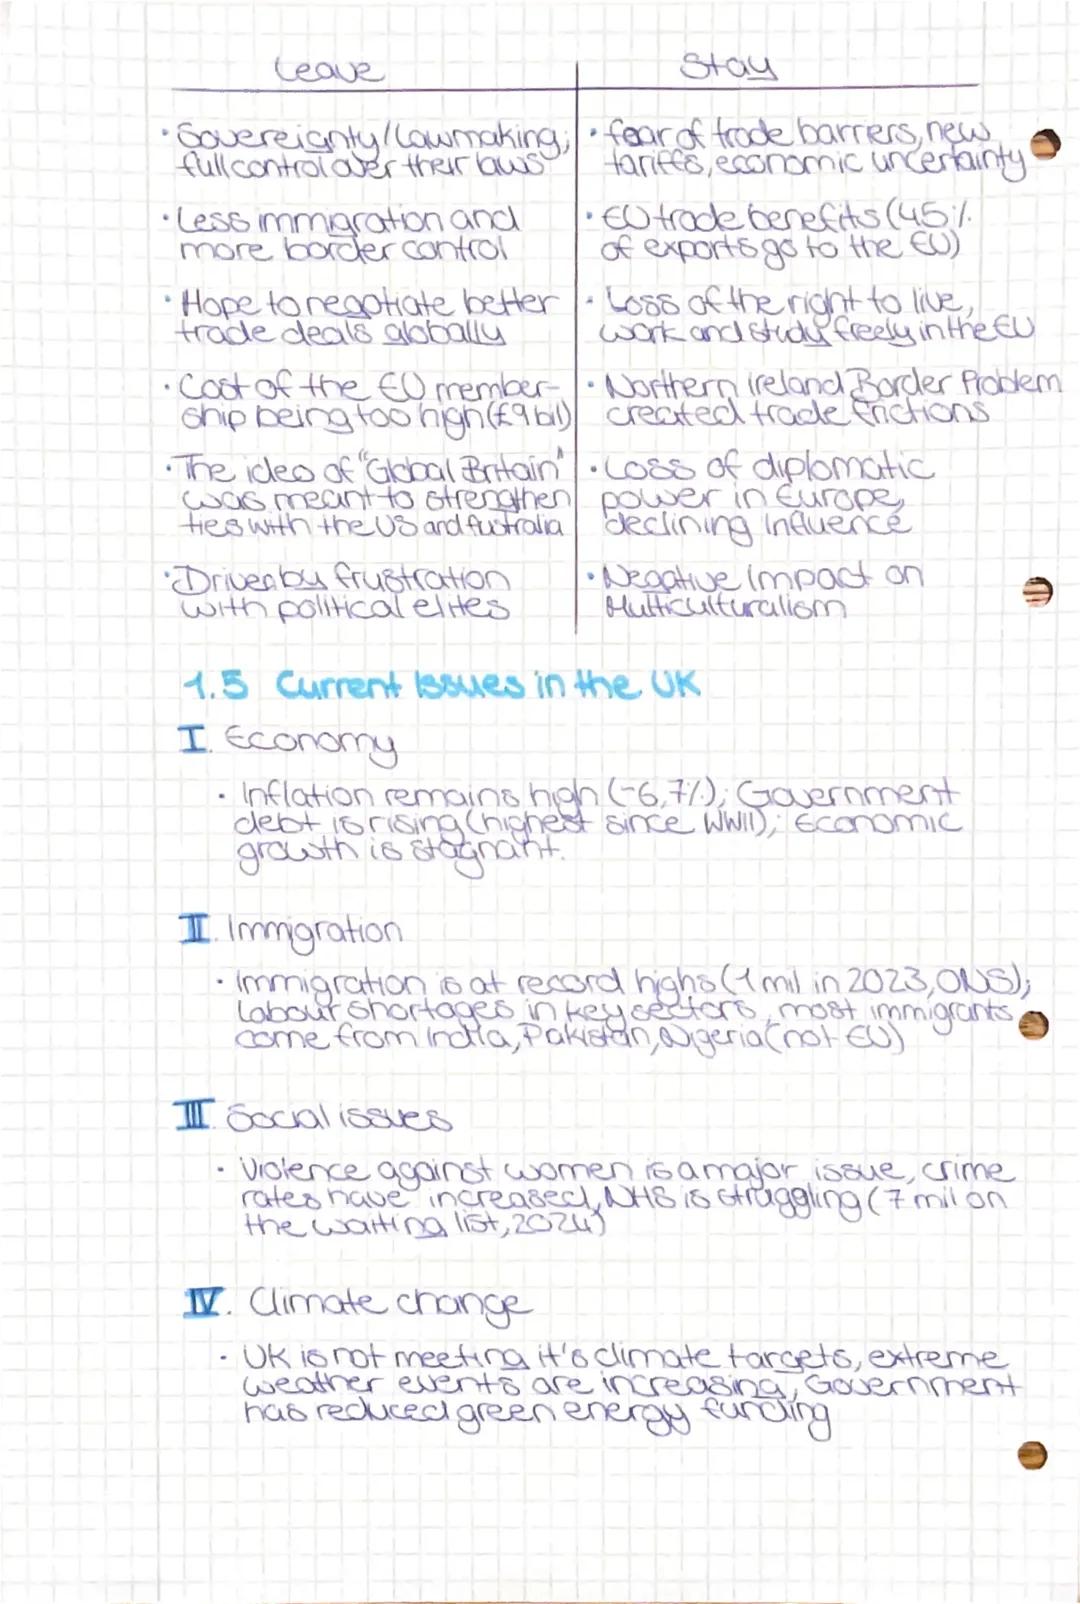 Leave
Stay
• Sovereignty/Lawmaking;
full control over their laws
• Less immigration and
more border control
• Hope to negotiate better
trade deals globally
• Cost of the EU member-
ship being too high (£9 bil)
• The idea of "Global Britain"
was meant to strengthen
ties with the US and Australia
• Driven by frustration
with political elites
• fear of trade barriers, new
tariffs, economic uncertainty
• EU trade benefits (45%
of exports go to the EU)
• Loss of the right to live,
work and study freely in the EU
• Northern Ireland Border Problem
created trade frictions
• Loss of diplomatic
power in Europe,
declining influence
• Negative impact on
Multiculturalism
1.5 Current Issues in the UK
I. Economy
• Inflation remains high (~6,7%); Government
debt is rising (highest since WWII); Economic
growth is stagnant.
II. Immigration
• Immigration is at record highs (1 mil in 2023, ONS);
Labour shortages in key sectors, most immigrants
come from India, Pakistan, Nigeria (not EU)
III. Social issues
• Violence against women is a major issue, crime
rates have increased, NHS is struggling (7 mil on
the waiting list, 2024)
IV. Climate change
• UK is not meeting it's climate targets, extreme
weather events are increasing, Government
has reduced green energy funding